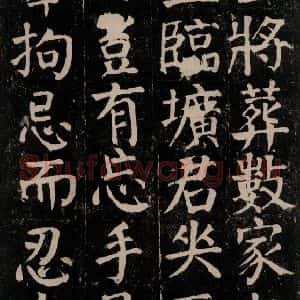 將葬數家
臨壙君坐
豈有忘手
拘忌而忍